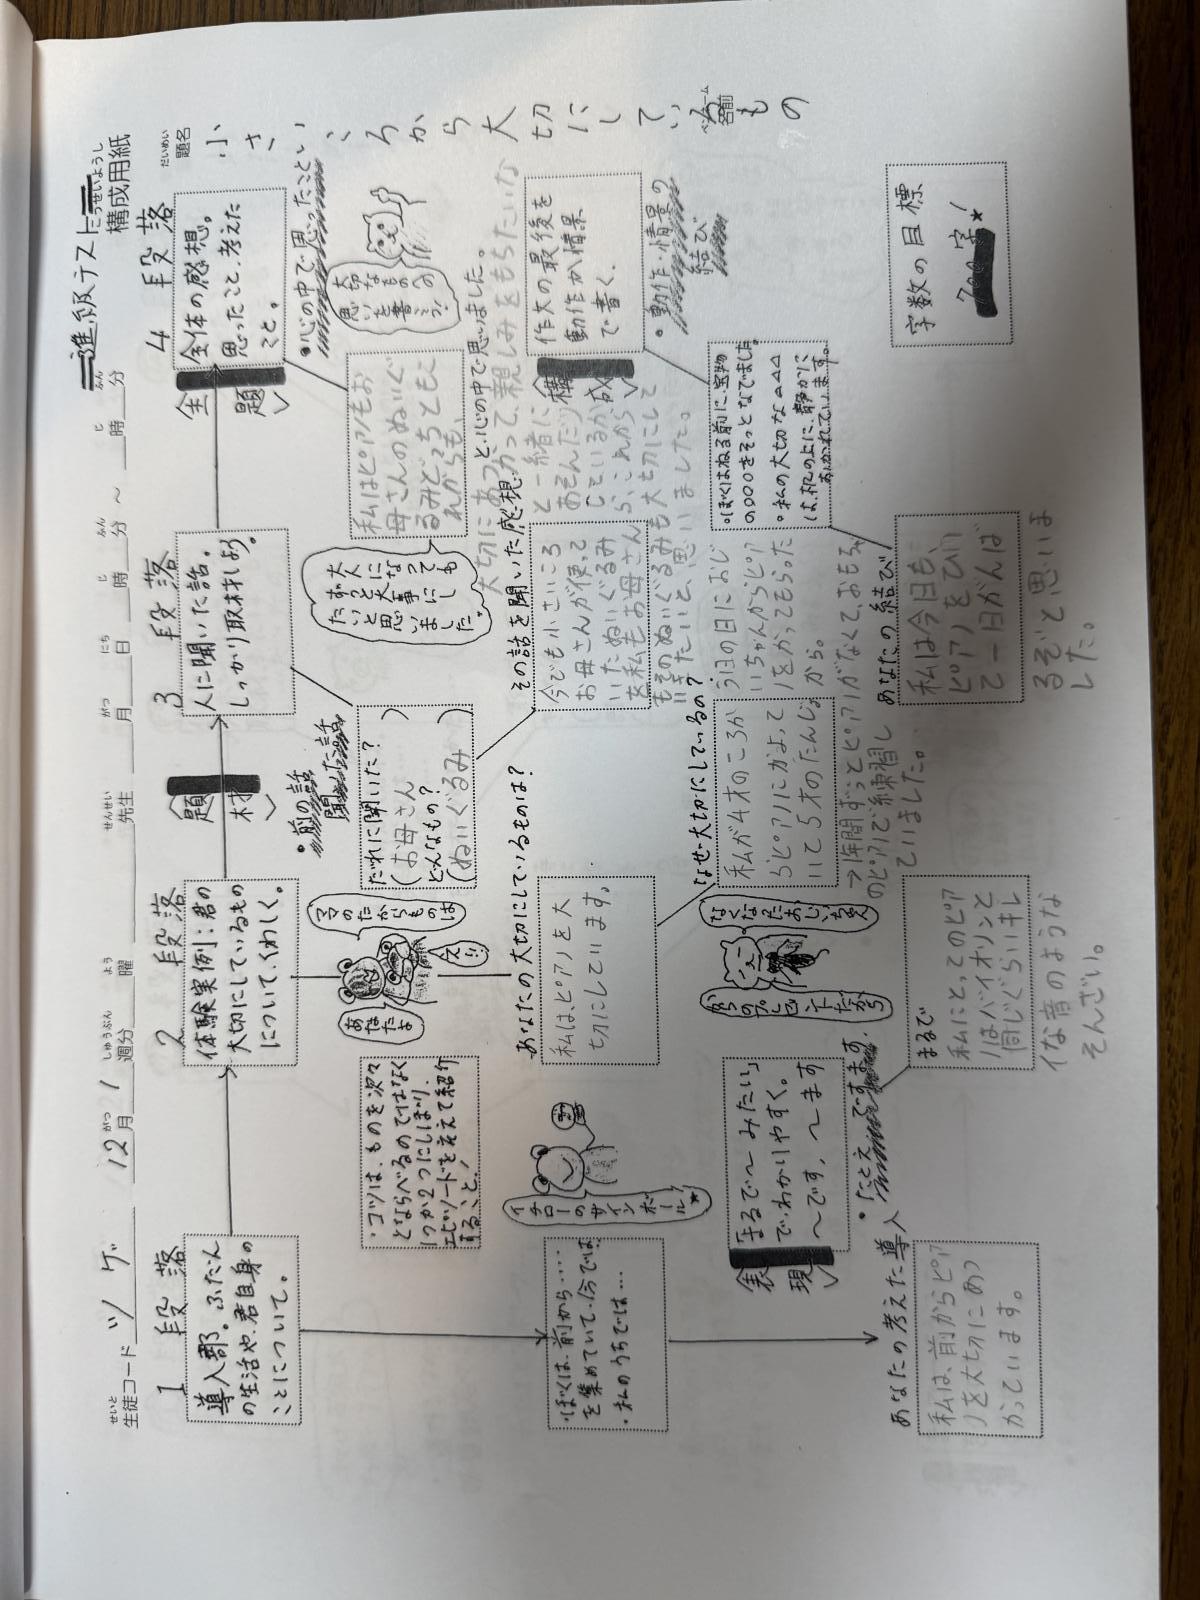 進級テスト
こうせいようし
構成用紙
せいと
生徒コード ツゲ 12月 1週分 曜 先生 月 日 時 分 ～ 時 分
だいめい
題名
小さいころから大切にしているもの
1
段落
導入部。ふだん
の生活や君自身の
ことについて。
・ぼくは、前から……
を集めていて、今では…
・私のうちでは…
あなたの考えた導入
私は、前からピア
ノを大切にあつ
かっています。
2
段落
体験実例：君の
大切にしているもの
について、くわしく。
・コツは、ものを次々
とならべるのではなく
1つか2つにしぼり、
エピソードを交えて紹介
すること！
ママのたからものは
あなたよ
え!!
イチローのサインボール！★
あなたの大切にしているものは？
私はピアノを大
切にしています。
なぜ大切にしているの？
私が4才のころか
らピアノにかよって
いて5才のたんじょ
う日の日におじ
いちゃんからピア
ノをかってもらった
から。
→1年間ずっとピアノがなくて、おもちゃ
のピアノで練習し
ていました。
なくなったおじいちゃん
からのプレゼントだから
＜表現＞
「まるで～みたい」
でわかりやすく。
～です、～ます
・たとえ
ですます
まるで
私にとってこのピア
ノはバイオリンと
同じぐらいキレ
イな音のような
そんざい。
＜題材＞
3
段落
人に聞いた話。
しっかり取材しよう。
・前の話
聞いた話
だれに聞いた？
（お母さん）
どんなもの？
（ぬいぐるみ）
大人になっても
ずっと大事にし
たいと思いました。
その話を聞いた感想
今でも小さいころ
お母さんが使って
いたぬいぐるみ
を私もお母さん
と一緒に
あそんだり
しているか
ら、これから
もそのぬいぐるみも大切にして
いきたいと、思いました。
＜主題＞
4
段落
全体の感想。
思ったこと、考えた
こと。
・心の中で思ったこと
大切なものへの
思いを書こう！
私はピアノもお
母さんのぬいぐ
るみどっちともこ
れからも、
大切にあつかって、親しみをもちたいな
と、心の中で思いました。
＜構成＞
作文の最後を
動作か情景
で書く。
・動作・情景の
結び
。ぼくはねる前に、宝物
の○○○をそっとなでました。
。私の大切な△△△
は、机の上に、静かに
おかれています。
あなたの結び
私は今日も、
ピアノをひい
て一日がんば
るぞと思いま
した。
字数の目標
700字！★